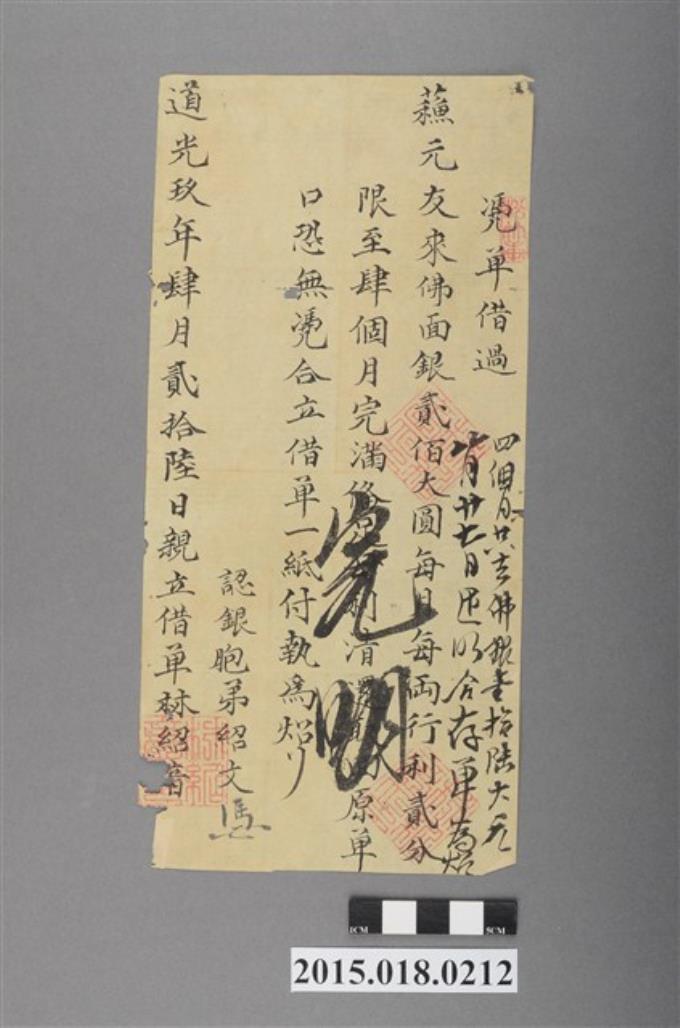 憑單借過
蘓元友來佛面銀貳佰大圓每月每両行利貳分
限至肆個月完滿 利清還 原单
口恐無憑合立借单一紙付執為炤
認銀胞弟紹文
道光玖年肆月貳拾陸日親立借单林紹
四個月共去佛銀壹拾陸大元
月廿七日 明合存单為炤
完明
1CM 5CM
2015.018.0212